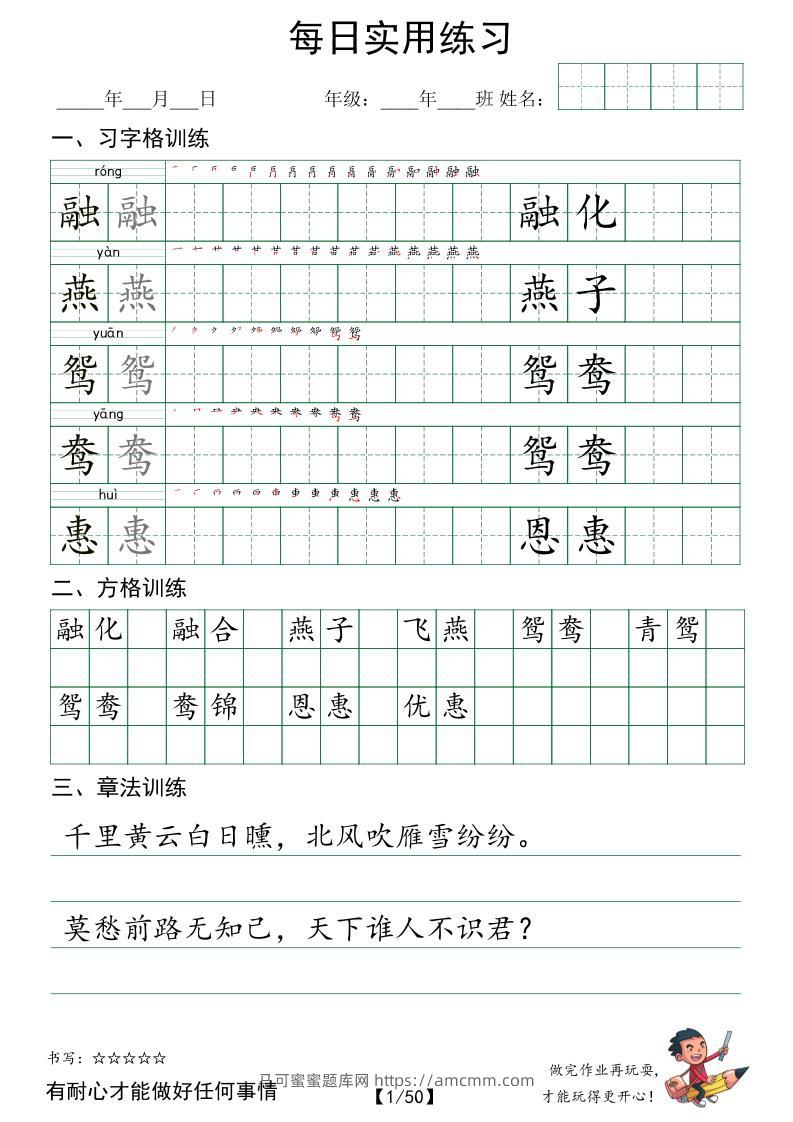 每日实用练习
_____年___月___日 年级：____年____班 姓名：
一、习字格训练
róng
融 融 融 化
yàn
燕 燕 燕 子
yuān
鸳 鸳 鸳 鸯
yāng
鸯 鸯 鸳 鸯
huì
惠 惠 恩 惠
二、方格训练
融 化 融 合 燕 子 飞 燕 鸳 鸯 青 鸳
鸳 鸯 鸯 锦 恩 惠 优 惠
三、章法训练
千里黄云白日曛，北风吹雁雪纷纷。
莫愁前路无知己，天下谁人不识君？
书写：☆☆☆☆☆
有耐心才能做好任何事情
马可蜜蜜题库网 https://amcmm.com
【1/50】
做完作业再玩耍，
才能玩得更开心！